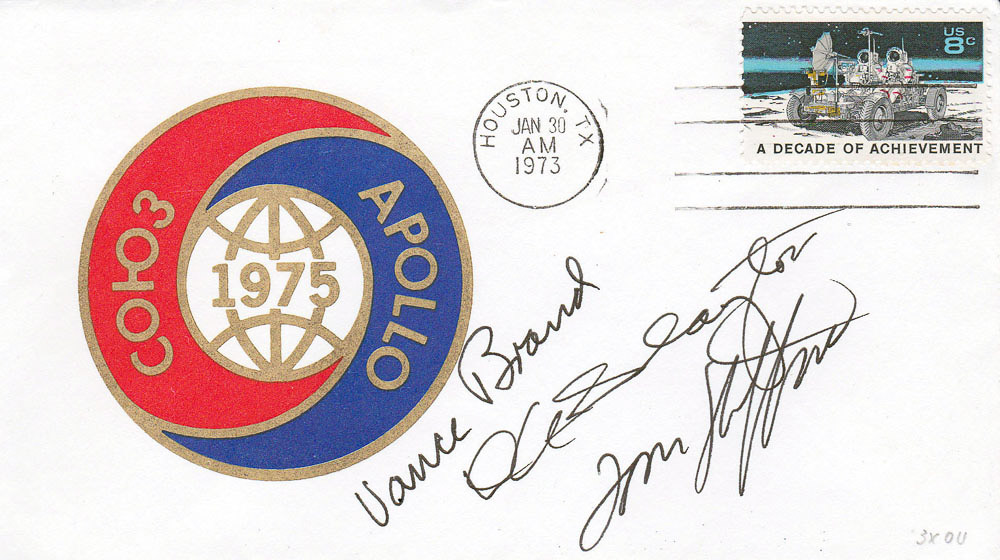 СОЮЗ
APOLLO
1975
HOUSTON, TX
JAN 30
AM
1973
US
8c
A DECADE OF ACHIEVEMENT
Vance Brand
Deke Slayton
Tom Stafford
3X OU